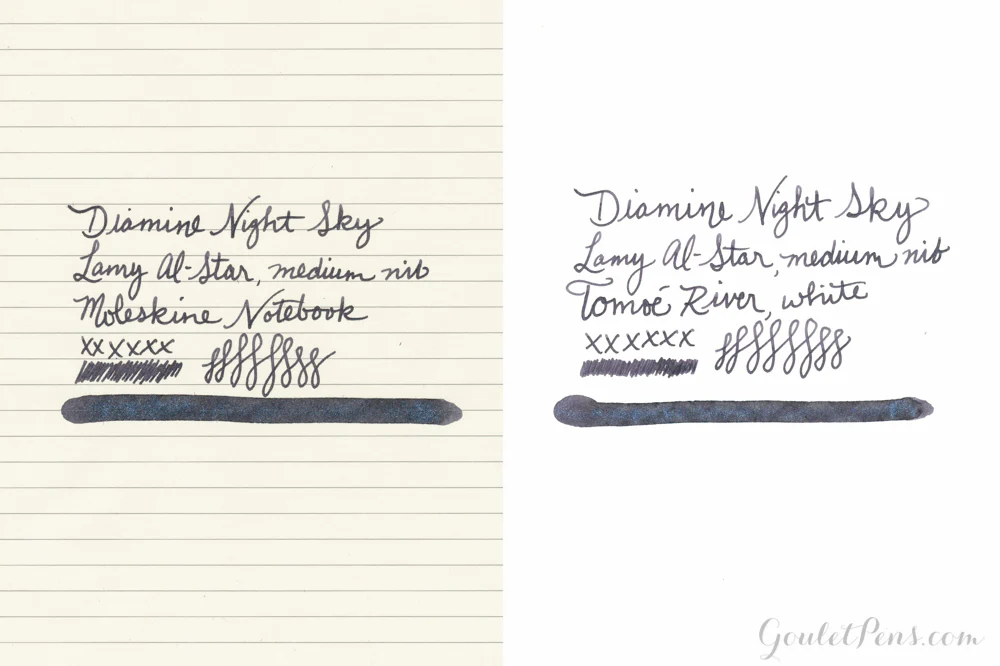 Diamine Night Sky
Lamy Al-Star, medium nib
Moleskine Notebook
xx xxxxx
Diamine Night Sky
Lamy Al-Star, medium nib
Tomoé River, white
xxxxxxx
GouletPens.com